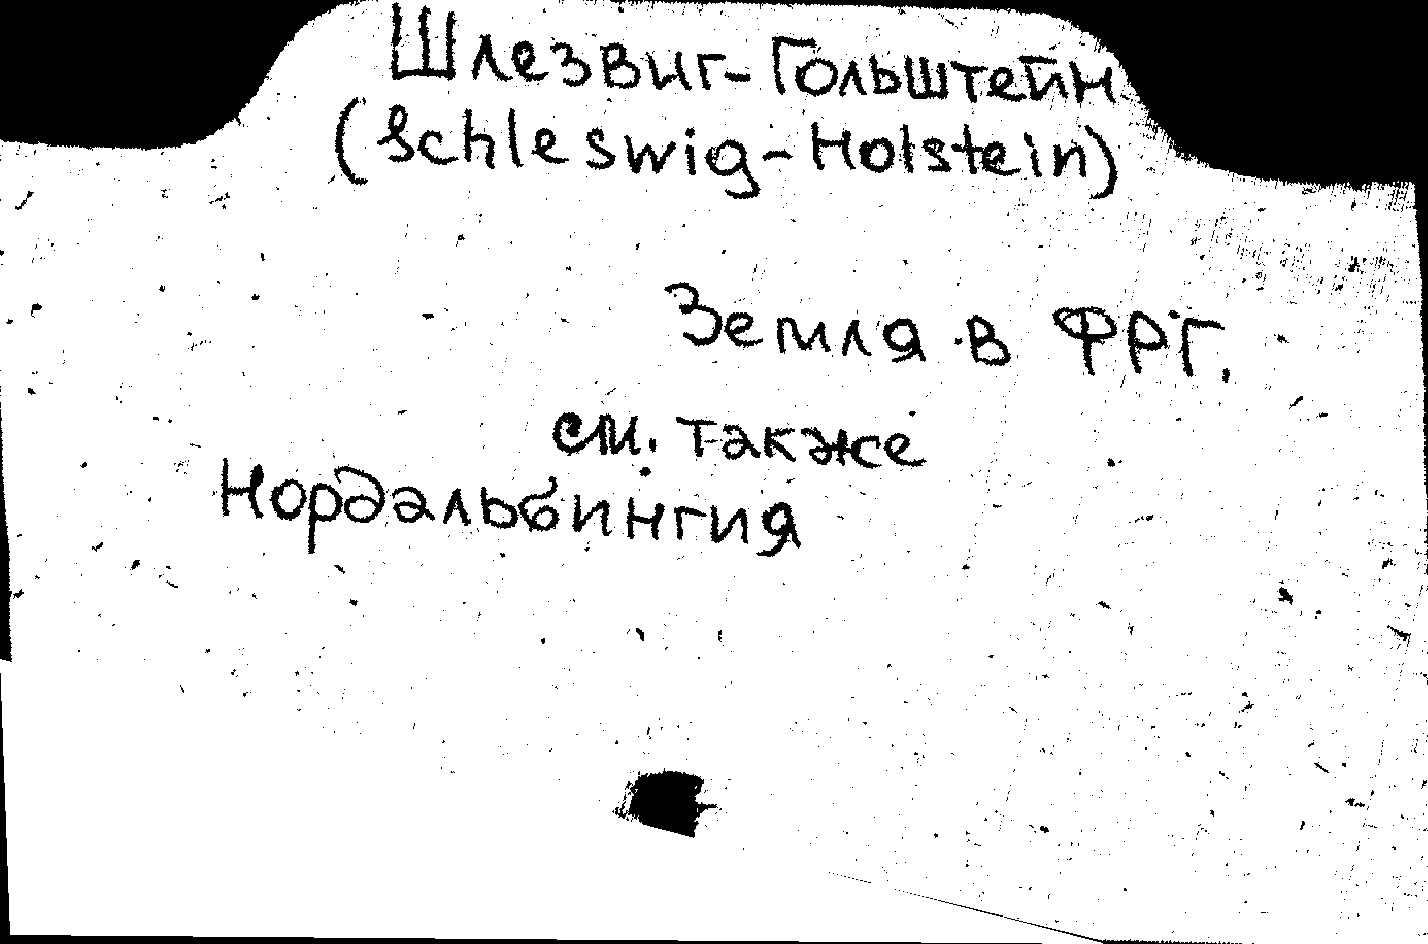 Шлезвиг-Гольштейн
(Schleswig-Holstein)
Земля в ФРГ.
см. также
Нордальбингия